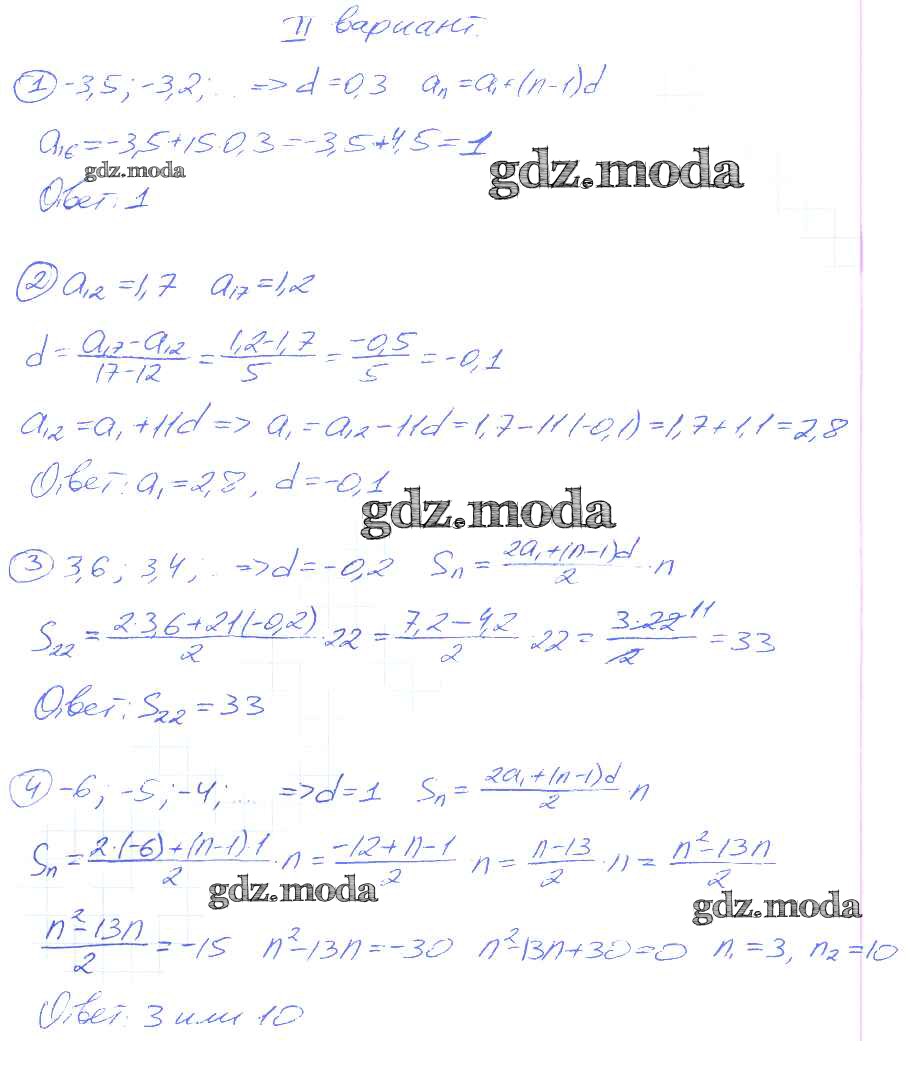 II вариант.
① -3,5; -3,2; ... => d=0,3 aₙ=a₁+(n-1)d
a₁₆=-3,5+15·0,3=-3,5+4,5=1
gdz.moda
gdz.moda
Ответ: 1
② a₁₂=1,7 a₁₇=1,2
d = (a₁₇-a₁₂)/(17-12) = (1,2-1,7)/5 = (-0,5)/5 = -0,1
a₁₂=a₁+11d => a₁=a₁₂-11d=1,7-11(-0,1)=1,7+1,1=2,8
Ответ: a₁=2,8, d=-0,1
gdz.moda
③ 3,6; 3,4; ... => d=-0,2 Sₙ = (2a₁+(n-1)d)/2 · n
S₂₂ = (2·3,6+21(-0,2))/2 · 22 = (7,2-4,2)/2 · 22 = (3·22 11)/2 = 33
Ответ: S₂₂=33
④ -6; -5; -4; ... => d=1 Sₙ = (2a₁+(n-1)d)/2 · n
Sₙ = (2·(-6)+(n-1)·1)/2 · n = (-12+n-1)/2 · n = (n-13)/2 · n = (n²-13n)/2
gdz.moda
gdz.moda
(n²-13n)/2 = -15 n²-13n=-30 n²-13n+30=0 n₁=3, n₂=10
Ответ: 3 или 10